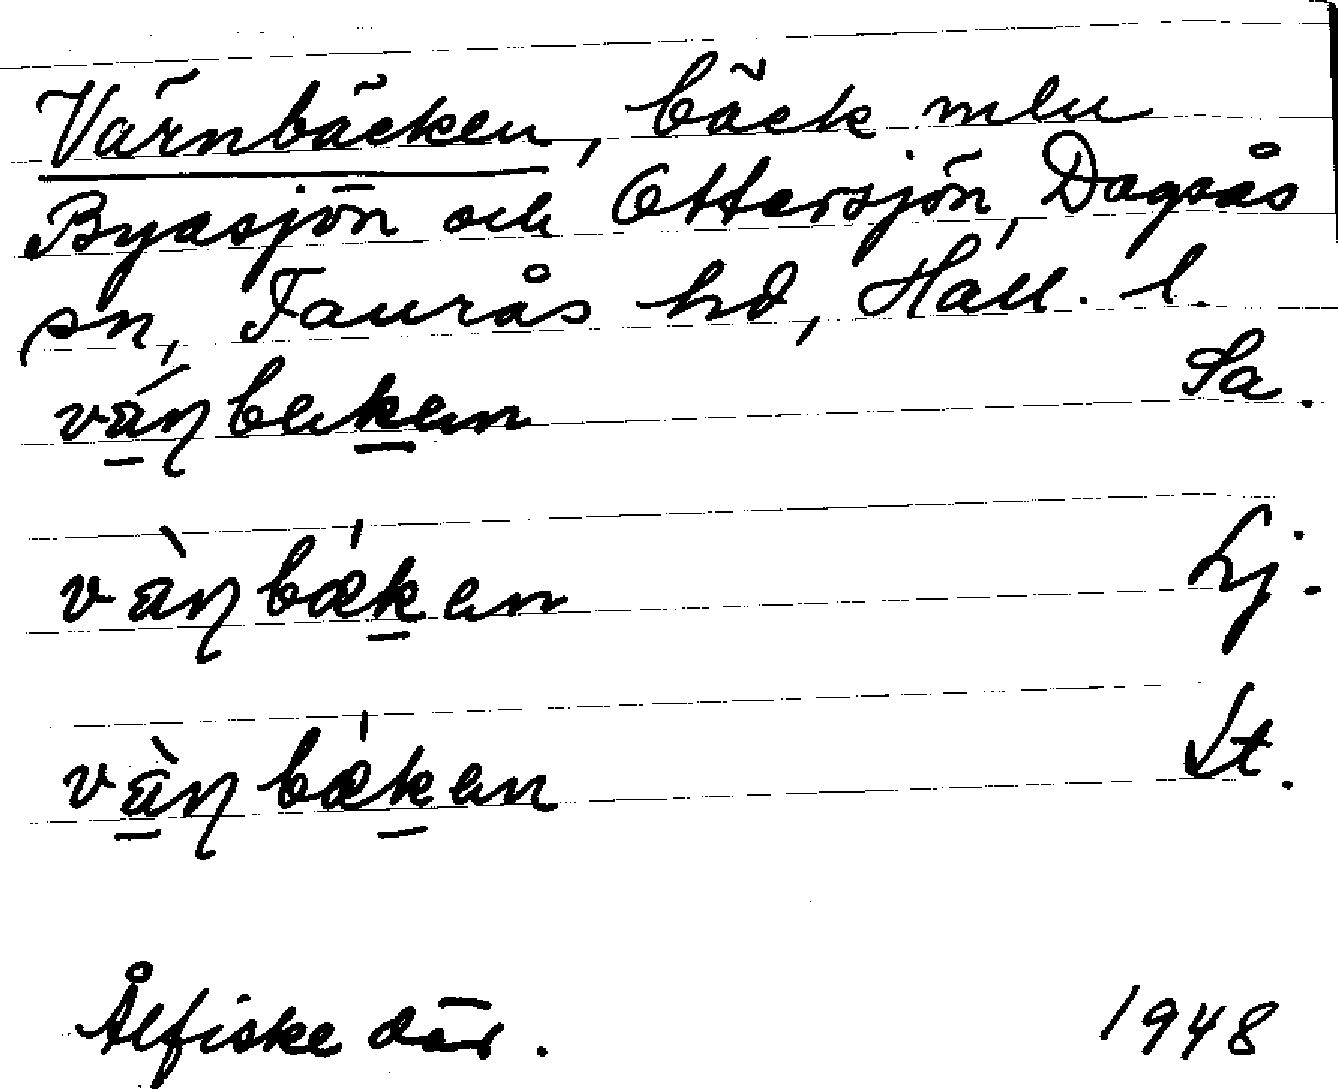 Värnbäcken, bäck mlu
Byasjön och Ottersjön, Dagsås
sn, Faurås hd, Hall. l.
vá̱ɳbeḵen Sa.
vàɳbǽḵen Lj.
và̱ɳbǽḵen St.
Ålfiske där. 1948